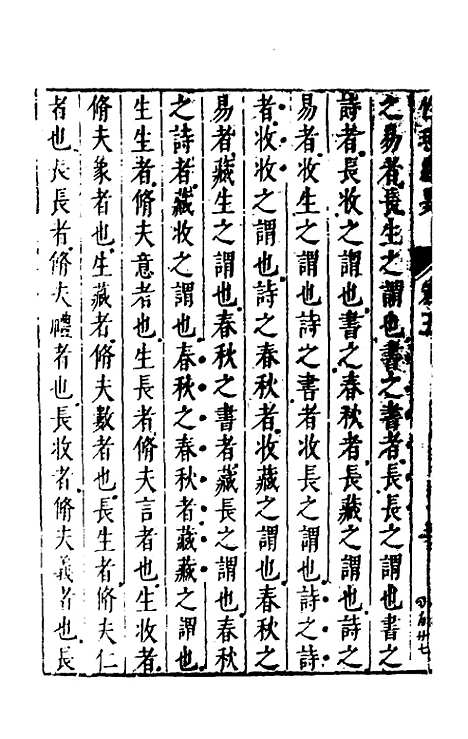 性理綜要 卷五
之易者長生之謂也書之書者長長之謂也書之
詩者長收之謂也書之春秋者長藏之謂也詩之
易者收生之謂也詩之書者收長之謂也詩之詩
者收收之謂也詩之春秋者收藏之謂也春秋之
易者藏生之謂也春秋之書者藏長之謂也春秋
之詩者藏收之謂也春秋之春秋者藏藏之謂也
生生者脩夫意者也生長者脩夫言者也生收者
脩夫象者也生藏者脩夫數者也長生者脩夫仁
者也長長者脩夫禮者也長收者脩夫義者也長